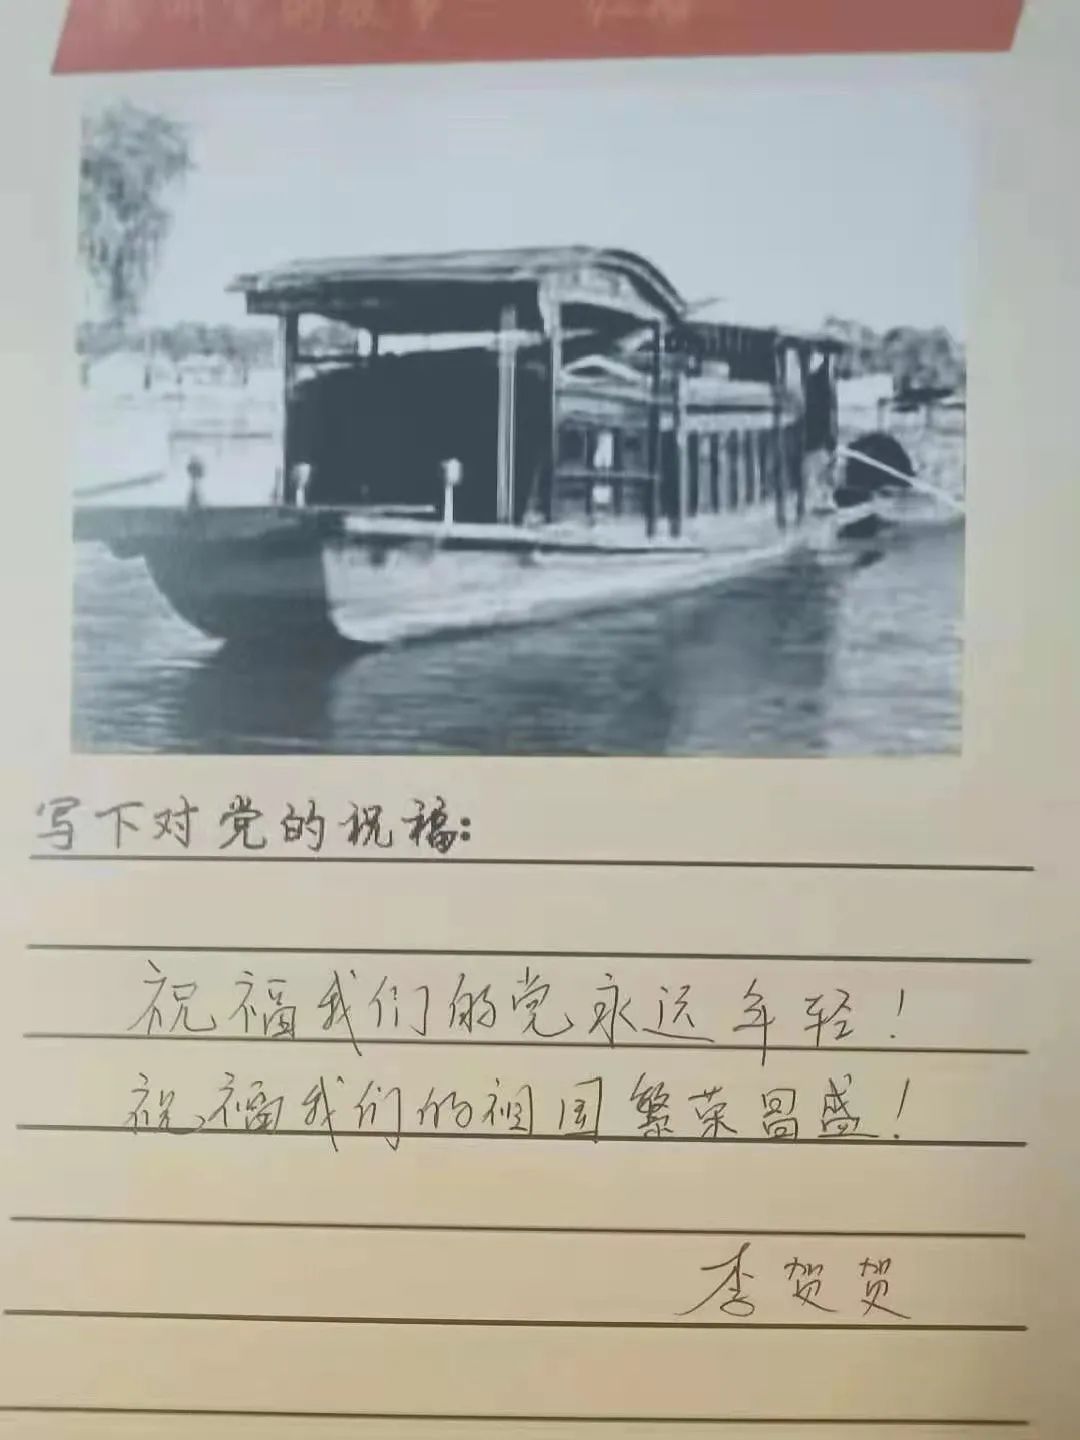 写下对党的祝福：
祝福我们的党永远年轻！
祝福我们的祖国繁荣昌盛！
李贺贺